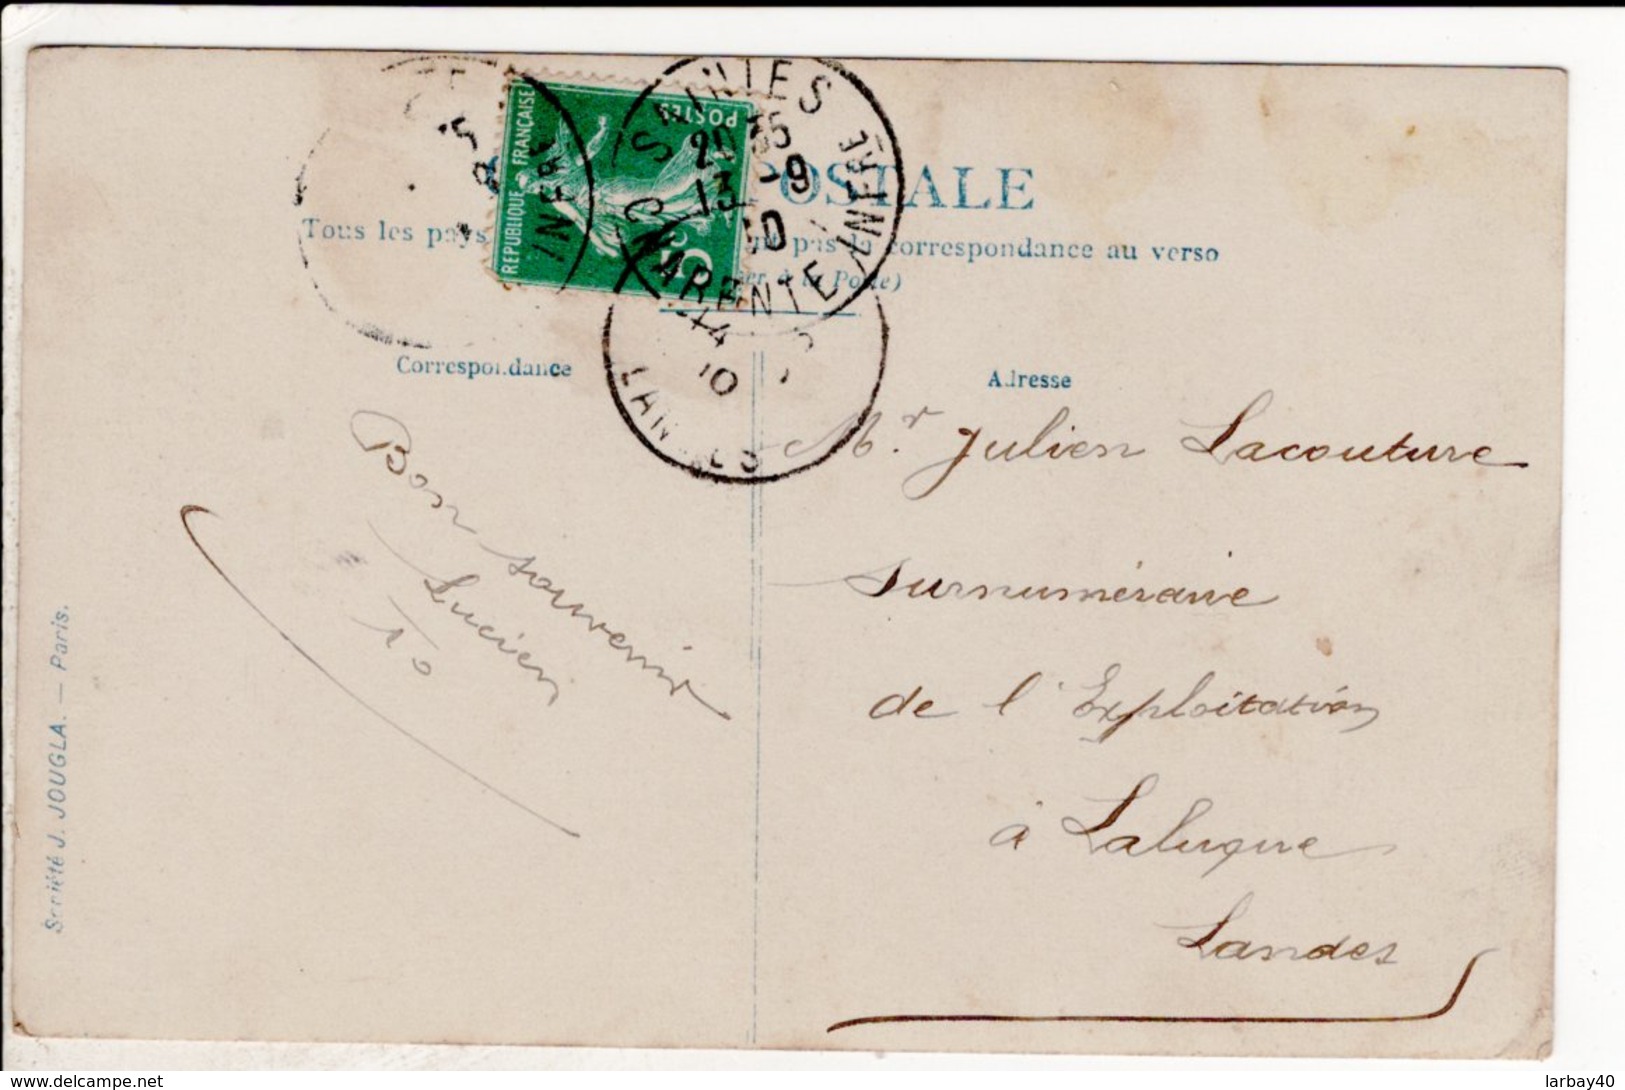 POSTALE
Tous les pays pas la correspondance au verso
à la Poste)
RÉPUBLIQUE FRANÇAISE
POSTES
5c
SAINTES
20 35
13 - 9
10
CHARENTE INFÉRE
INFÉRE
LANDES
14
10
Correspondance
Adresse
Bon souvenir
Lucien
10
Mr Julien Lacouture
surnuméraire
de l'Exploitation
à Laluque
Landes
Société J. JOUGLA. — Paris.
delcampe.net
larbay40